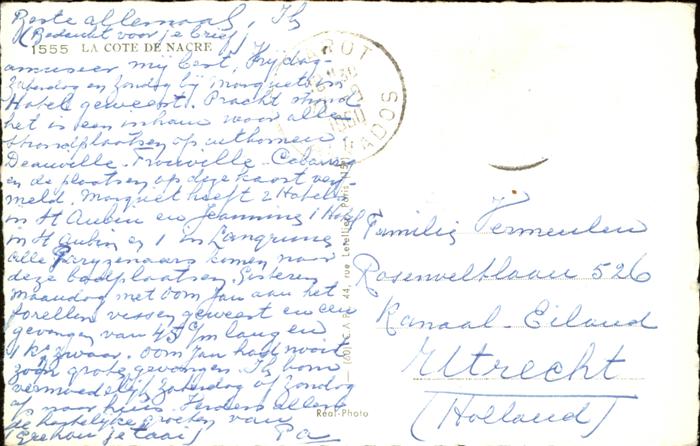 Beste allemaal, Ik
(Bedankt voor je brief)
1555 LA COTE DE NACRE
amuseer mij best, Vrijdag-
Zaterdag en Zondag bij Marquet in
Hotel geweest. Pracht strand
het is een inham waar alle
strandplaatsen op uitkomen
Deauville - Trouville - Cabourg
en de plaatsen op deze kaart ver-
meld. Marquet heeft 2 Hotels
in St Aubin en Jeannine 1 Hotel
in St Aubin en 1 in Langrune
Alle Parijzenaars komen naar
deze badplaatsen. Gisteren
maandag met oom Jan aan het
forellen vissen geweest en een
gevangen van 45 c/m lang en
1 kg zwaar. Oom Jan had nooit
zoo'n grote gevangen. Ik kom
vermoedelijk Zaterdag of Zondag
naar huis. Verders allen
de hartelijke groeten van
Pa
(en hou je taai)
CALVADOS
(60) C.A.P. 44, rue Letellier, Paris (15e)
Réal-Photo
Familie Vermeulen
Rosenveltlaan 526
Kanaal-Eiland
Utrecht
(Holland)